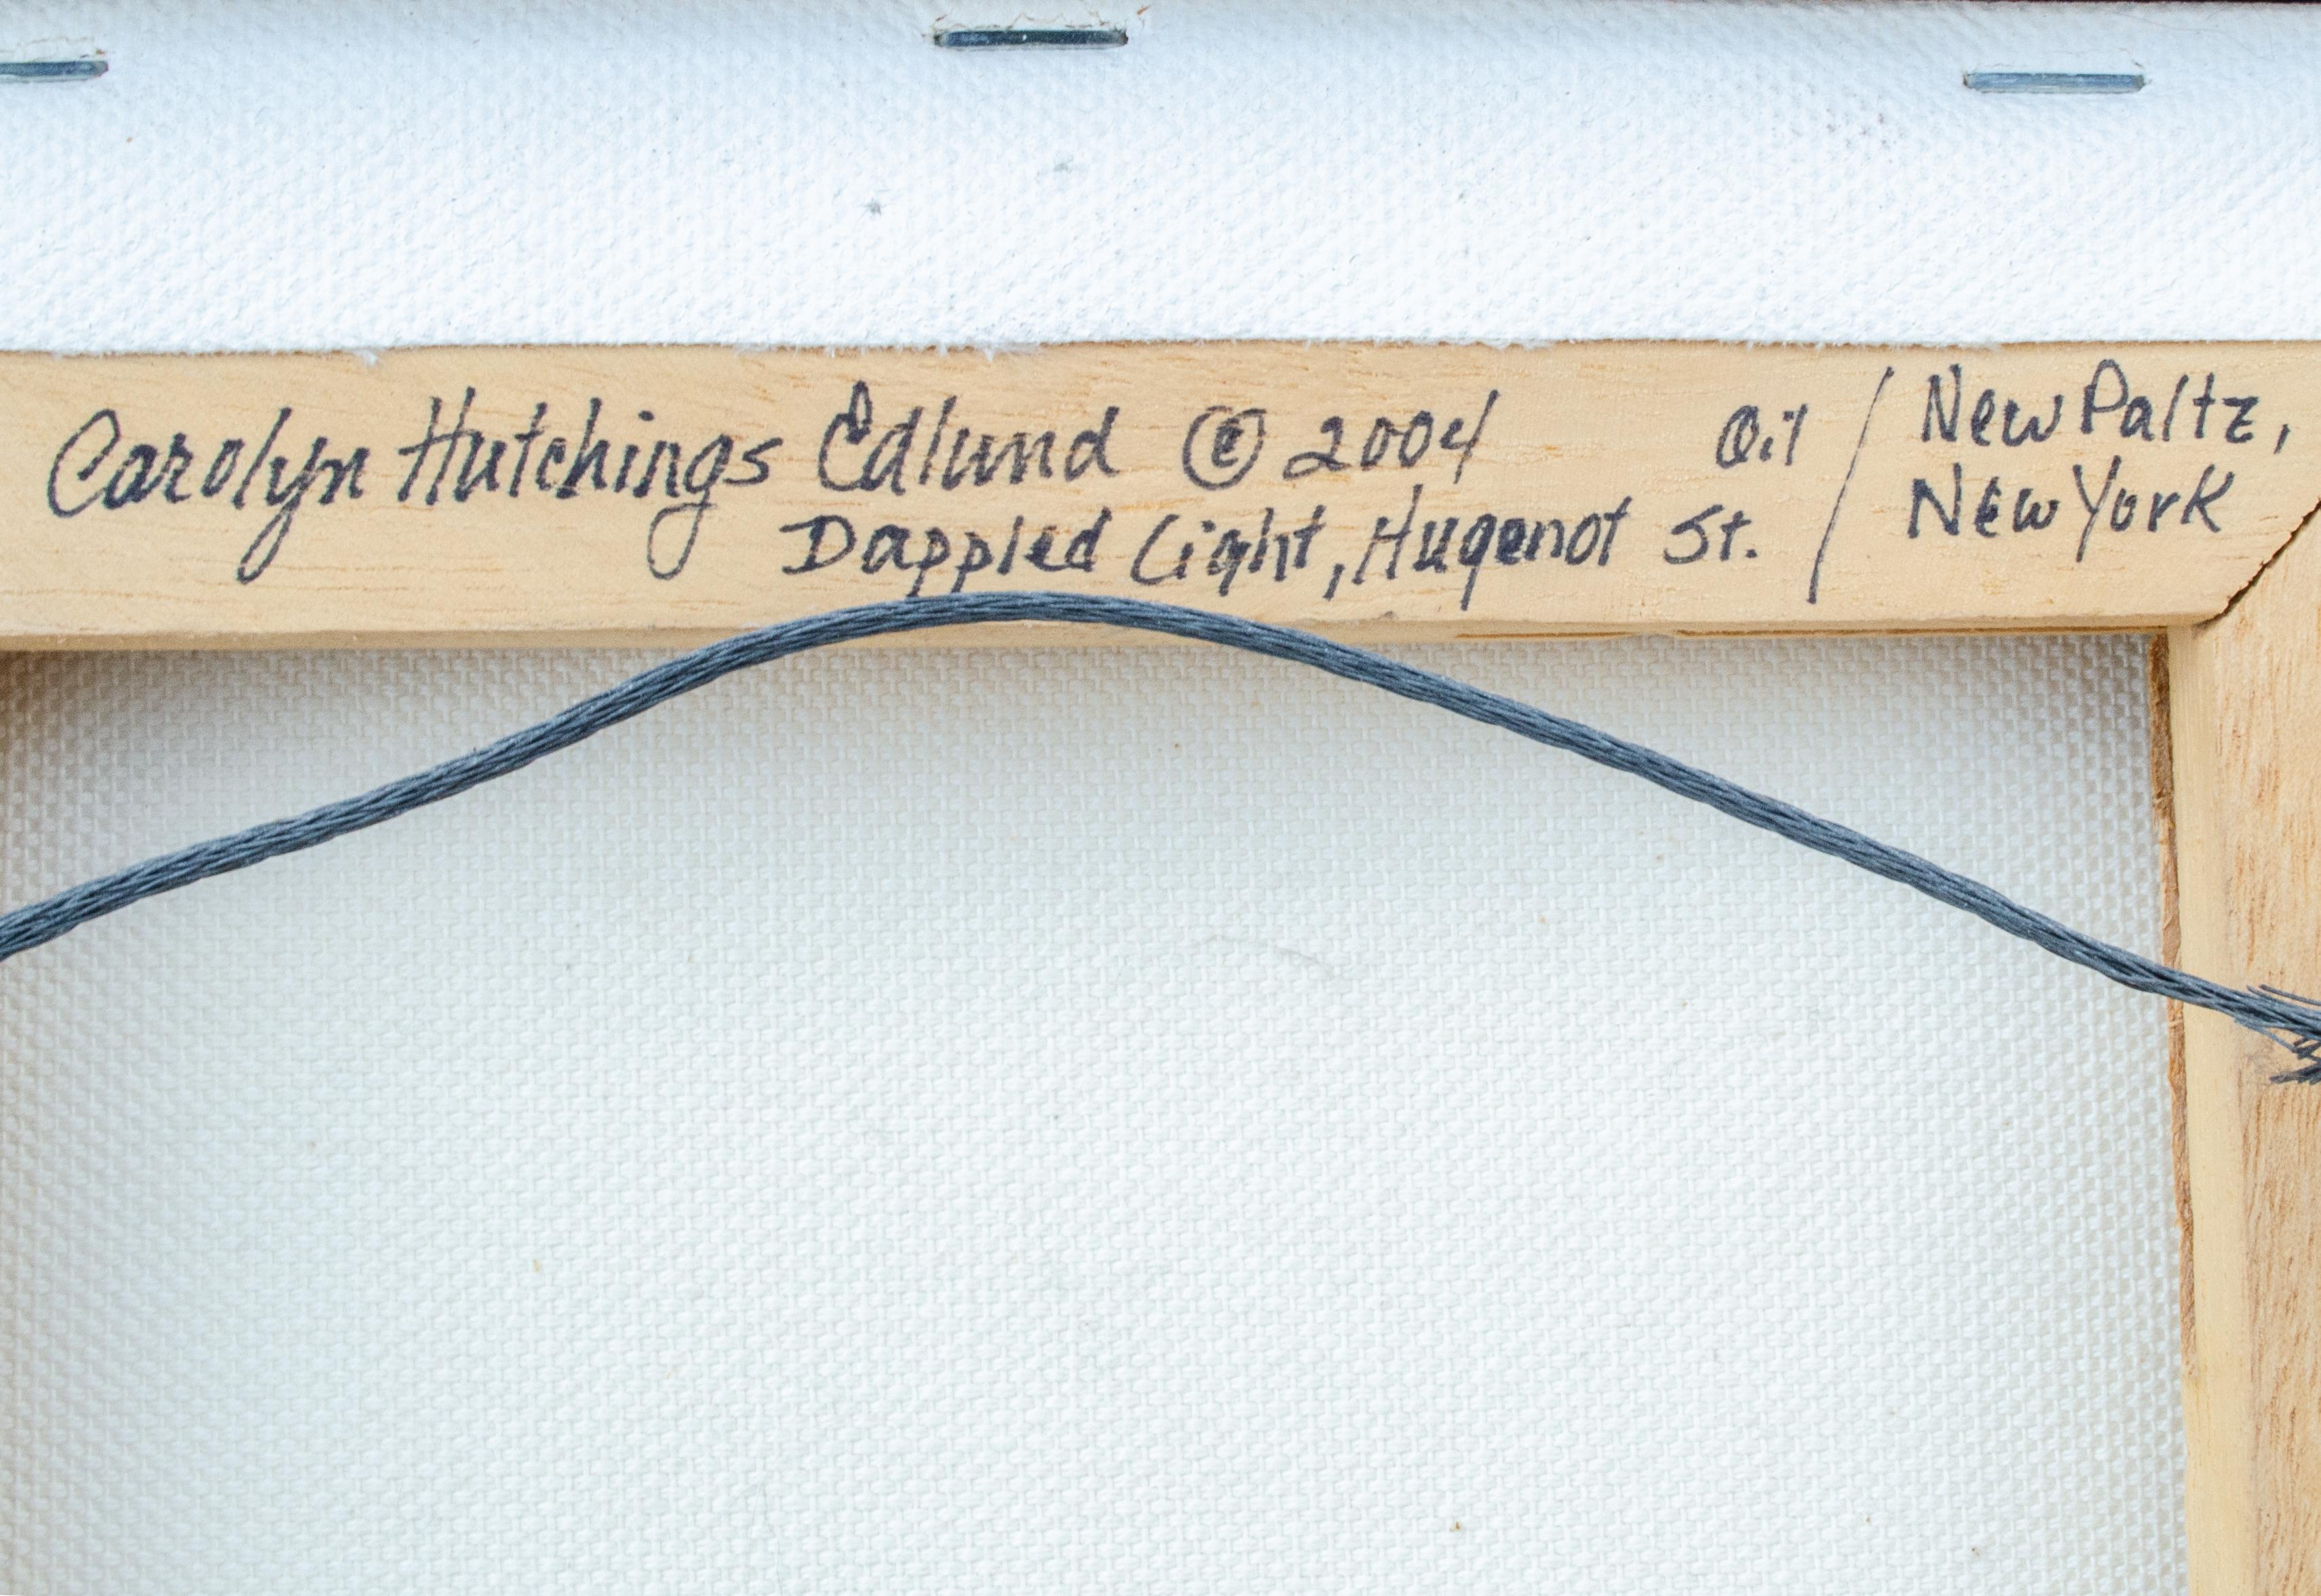 Carolyn Hutchings Edlund © 2004 Oil / New Paltz,
Dappled Light, Hugenot St. New York